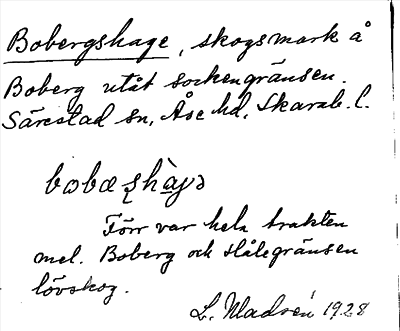 Bobergshage, skogsmark å
Boberg utåt sockengränsen.
Särestad sn, Åse hd, Skarab. l.
Förr var hela trakten
mel. Boberg och Hålegränsen
lövskog.
1928